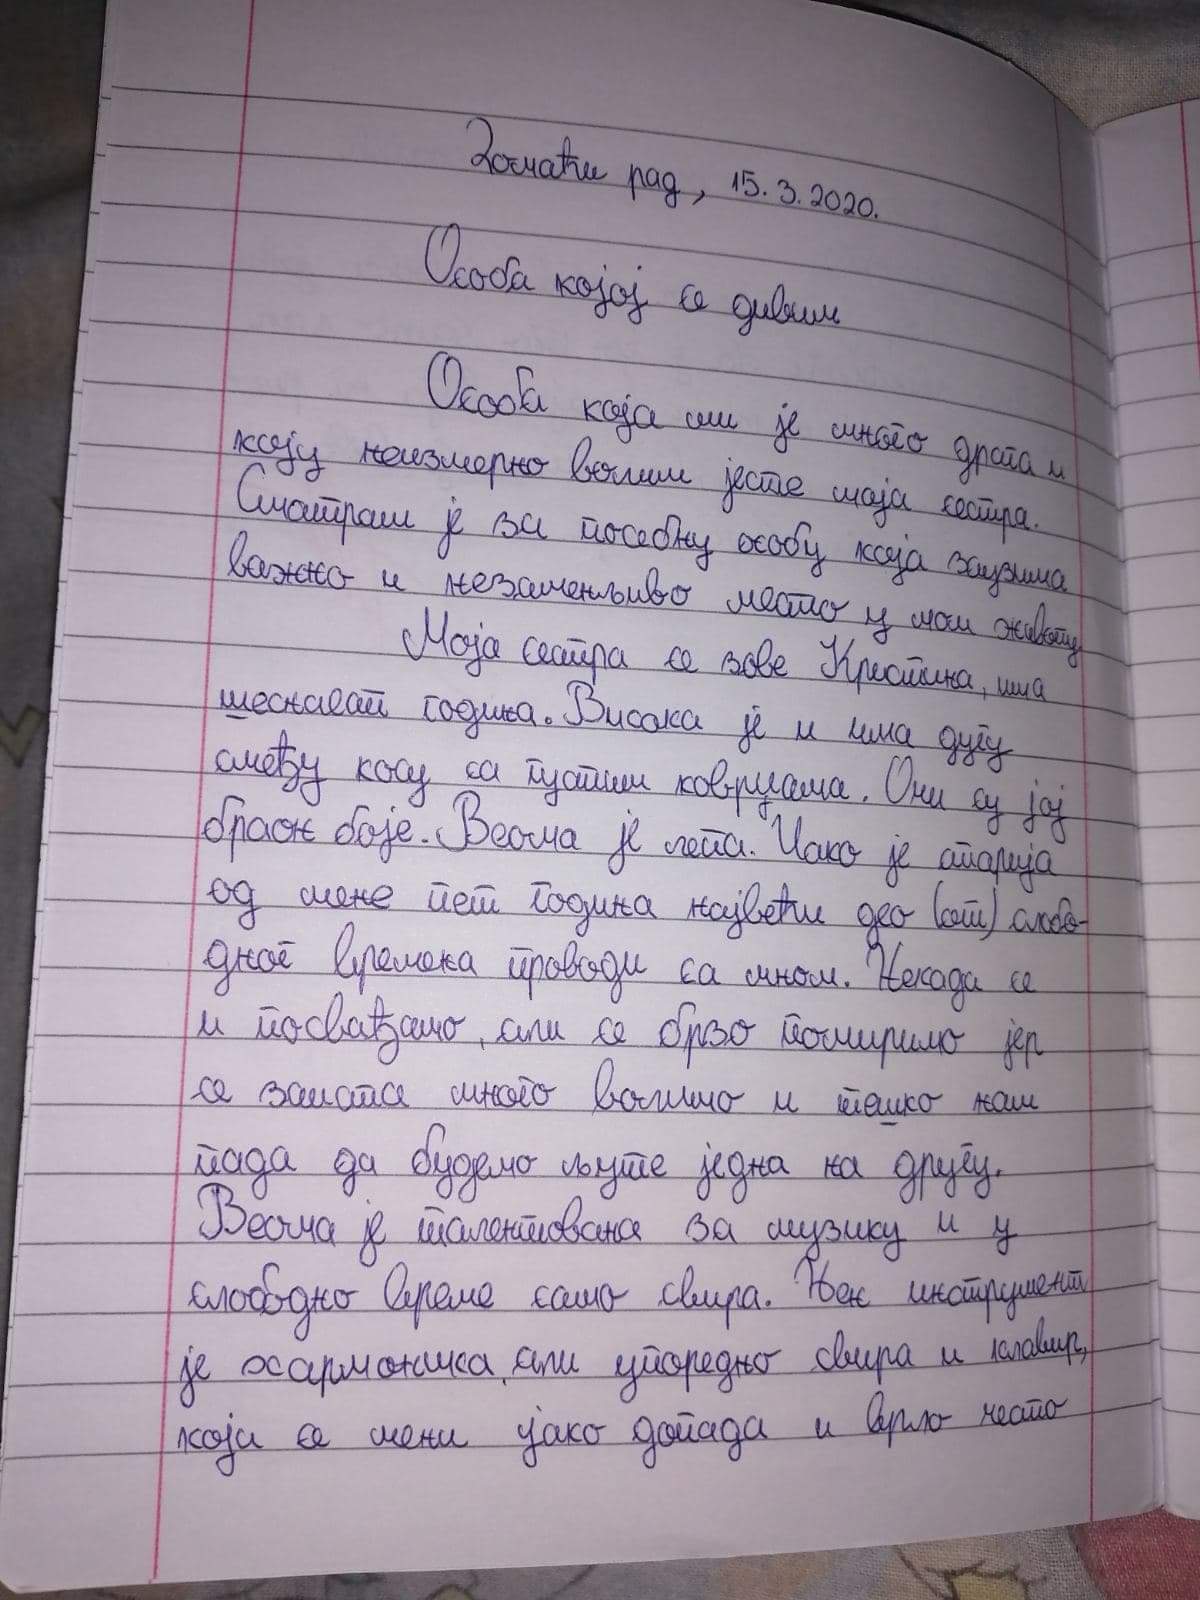 Домаћи рад, 15.3.2020.
Особа којој се дивим
Особа која ми је много драга и
коју неизмерно волим јесте моја сестра.
Сматрам је за посебну особу која заузима
важно и незамењиво место у мом животу
Моја сестра се зове Кристина, има
шеснаест година. Висока је и има дугу
смеђу косу са густим коврџама. Они су јој
браон боје. Веома је лепа. Иако је старија
од мене пет година највећи део (сат) слобо-
дног времена проводи са мном. Некада се
и посвађамо, али се брзо помиримо јер
се заиста много волимо и тешко нам
пада да будемо љуте једна на другу.
Веома је талентована за музику и у
слободно време само свира. Њен инструмент
је хармоника, али упоредно свира и клавир,
која се мени јако допада и врло често